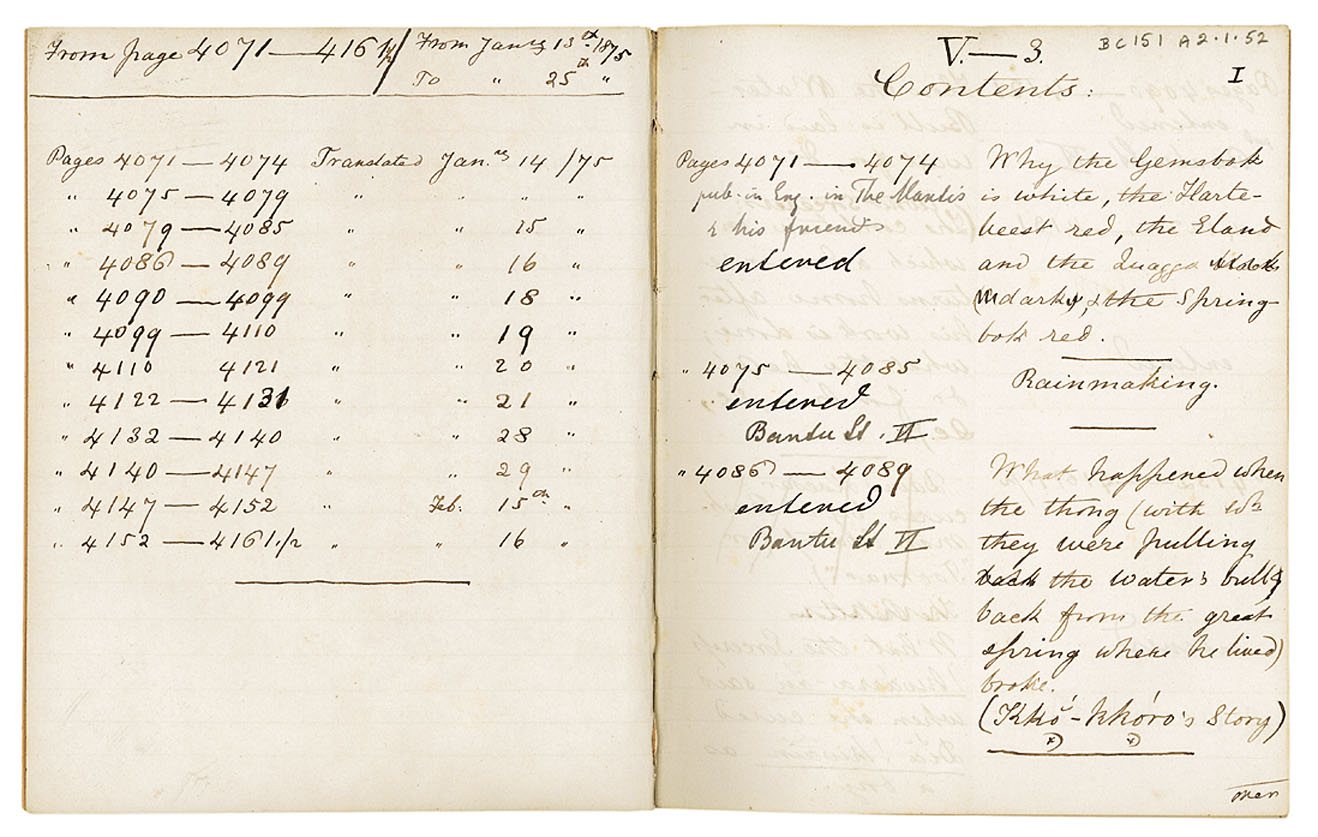 From page 4071 — 4161 1/2 / From Jany 13th 1875
To " 25th "
Pages 4071 — 4074 Translated Jan.ry 14 /75
" 4075 — 4079 " " " "
" 4079 — 4085 " " 15 "
" 4086 — 4089 " " 16 "
" 4090 — 4099 " " 18 "
" 4099 — 4110 " " 19 "
" 4110 4121 " " 20 "
" 4122 — 4131 " " 21 "
" 4132 — 4140 " " 28 "
" 4140 — 4147 " " 29 "
" 4147 — 4152 " Feb. 15th "
" 4152 — 4161 1/2 " " 16 "
BC151 A2.1.52
V. — 3.
I
Contents:
Pages 4071 — 4074
pub. in Eng. in The Mantis
& his friends
entered
Why the Gemsbok
is white, the Harte-
beest red, the Eland
and the Quagga
dark, & the Spring-
bok red.
" 4075 — 4085
entered
Bantu St. VI
Rainmaking.
" 4086 — 4089
entered
Bantu St VI
What happened when
the thong (with wh
they were pulling
back the water's bull
back from the great
spring where he lived)
broke.
(Kkó-kkóro's Story)
over